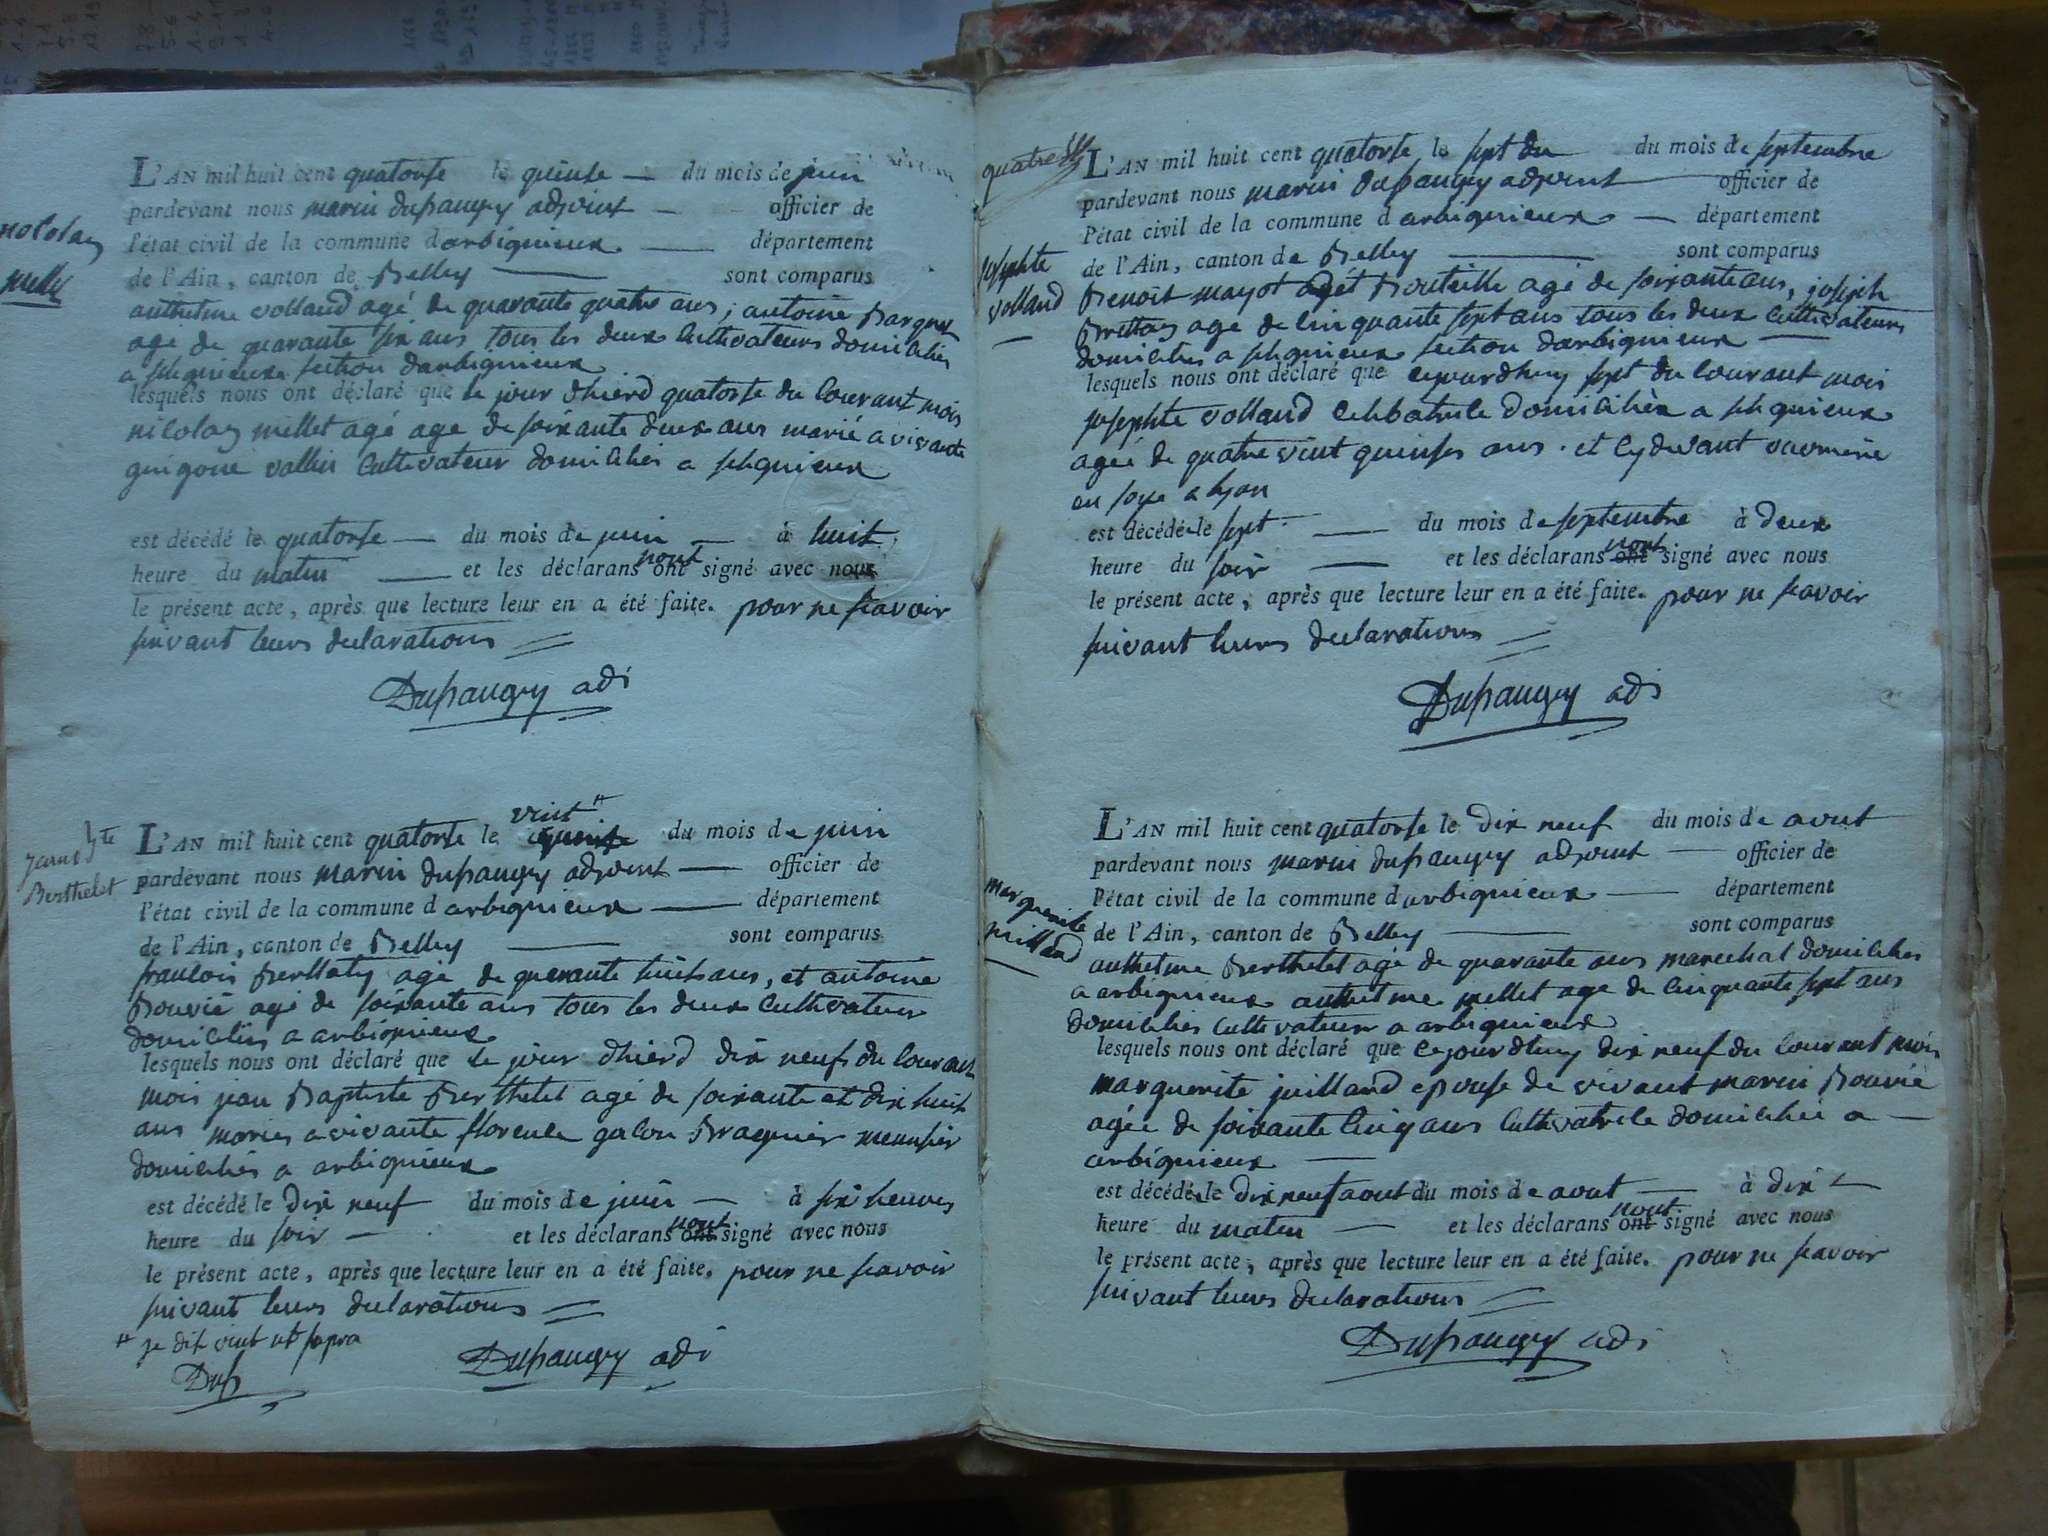 nicolay
millet
L'AN mil huit cent quatorse le quinse — du mois de juin
pardevant nous marin dupaugey adjoint — officier de
l'état civil de la commune d'arbignieux — département
de l'Ain, canton de Belley — sont comparus
anthelme volland agé de quarante quatre ans, antoine
agé de quarante six ans tous les deux Cultivateurs domiciliés
a section darbignieux
lesquels nous ont déclaré que le jour dhierd quatorse du Courant mois
nicolay millet agé age de soixante deux ans marié a vivante
guigone vallin Cultivateur domiciliés a
est décédé le quatorse — du mois de juin — à huit
heure du matin — et les déclarans nont ont signé avec nous
le présent acte, après que lecture leur en a été faite. pour ne scavoir
suivant leurs declarations
Dupaugey adj
Berthelet
L'AN mil huit cent quatorse le vint # du mois de juin
pardevant nous marin dupaugey adjoint — officier de
l'état civil de la commune d arbignieux — département
de l'Ain, canton de Belley — sont comparus
francois Berllaty agé de quarante huit ans, et antoine
Bouvié agé de soixante ans tous les deux Cultivateurs
domiciliés a arbignieux
lesquels nous ont déclaré que le jour dhierd dix neuf du Courant
mois jean Baptiste Berthelet agé de soixante et dix huit
ans mariés a vivante florence galon Bragnier meunsier
domiciliés a arbignieux
est décédé le dix neuf du mois de juin — à six heures
heure du soir — et les déclarans nont ont signé avec nous
le présent acte, après que lecture leur en a été faite. pour ne scavoir
suivant leurs declarations
# je dit vint ut supra
Dup
Dupaugey adj
quatre
josephte
volland
L'AN mil huit cent quatorse le sept du du mois de septembre
pardevant nous marin Dupaugey adjoint officier de
l'état civil de la commune d arbignieux — département
de l'Ain, canton de Belley — sont comparus
Benoit mayot Bouteille agé de soixante ans, joseph
agé de Cinquante sept ans tous les deux Cultivateurs
domiciliés a section darbignieux —
lesquels nous ont déclaré que cejourdhuy sept du Courant mois
josephte volland Celibatrice domiciliée a
agée de quatre vint quinses ans. et Cydevant ouvriere
en soye a lyon
est décédé le sept — du mois de septembre à deux
heure du soir — et les déclarans nont ont signé avec nous
le présent acte, après que lecture leur en a été faite. pour ne scavoir
suivant leurs declarations
Dupaugey adj
marguerite
juilland
L'AN mil huit cent quatorse le dix neuf du mois de aout
pardevant nous marin dupaugey adjoint — officier de
l'état civil de la commune d arbignieux — département
de l'Ain, canton de Belley — sont comparus
anthelme Berthelet agé de quarante ans marechal domiciliés
a arbignieux anthelme millet age de Cinquante sept ans
domiciliés Cultivateur a arbignieux
lesquels nous ont déclaré que cejourdhuy dix neuf du Courant mois
marguerite juilland epouse de vivant marin Bouvié
agée de soixante Cinq ans Cultivatrice domiciliée a —
arbignieux —
est décédé le dix neuf aout du mois de aout — à dix
heure du matin — et les déclarans nont ont signé avec nous
le présent acte, après que lecture leur en a été faite. pour ne scavoir
suivant leurs declarations
Dupaugey adj